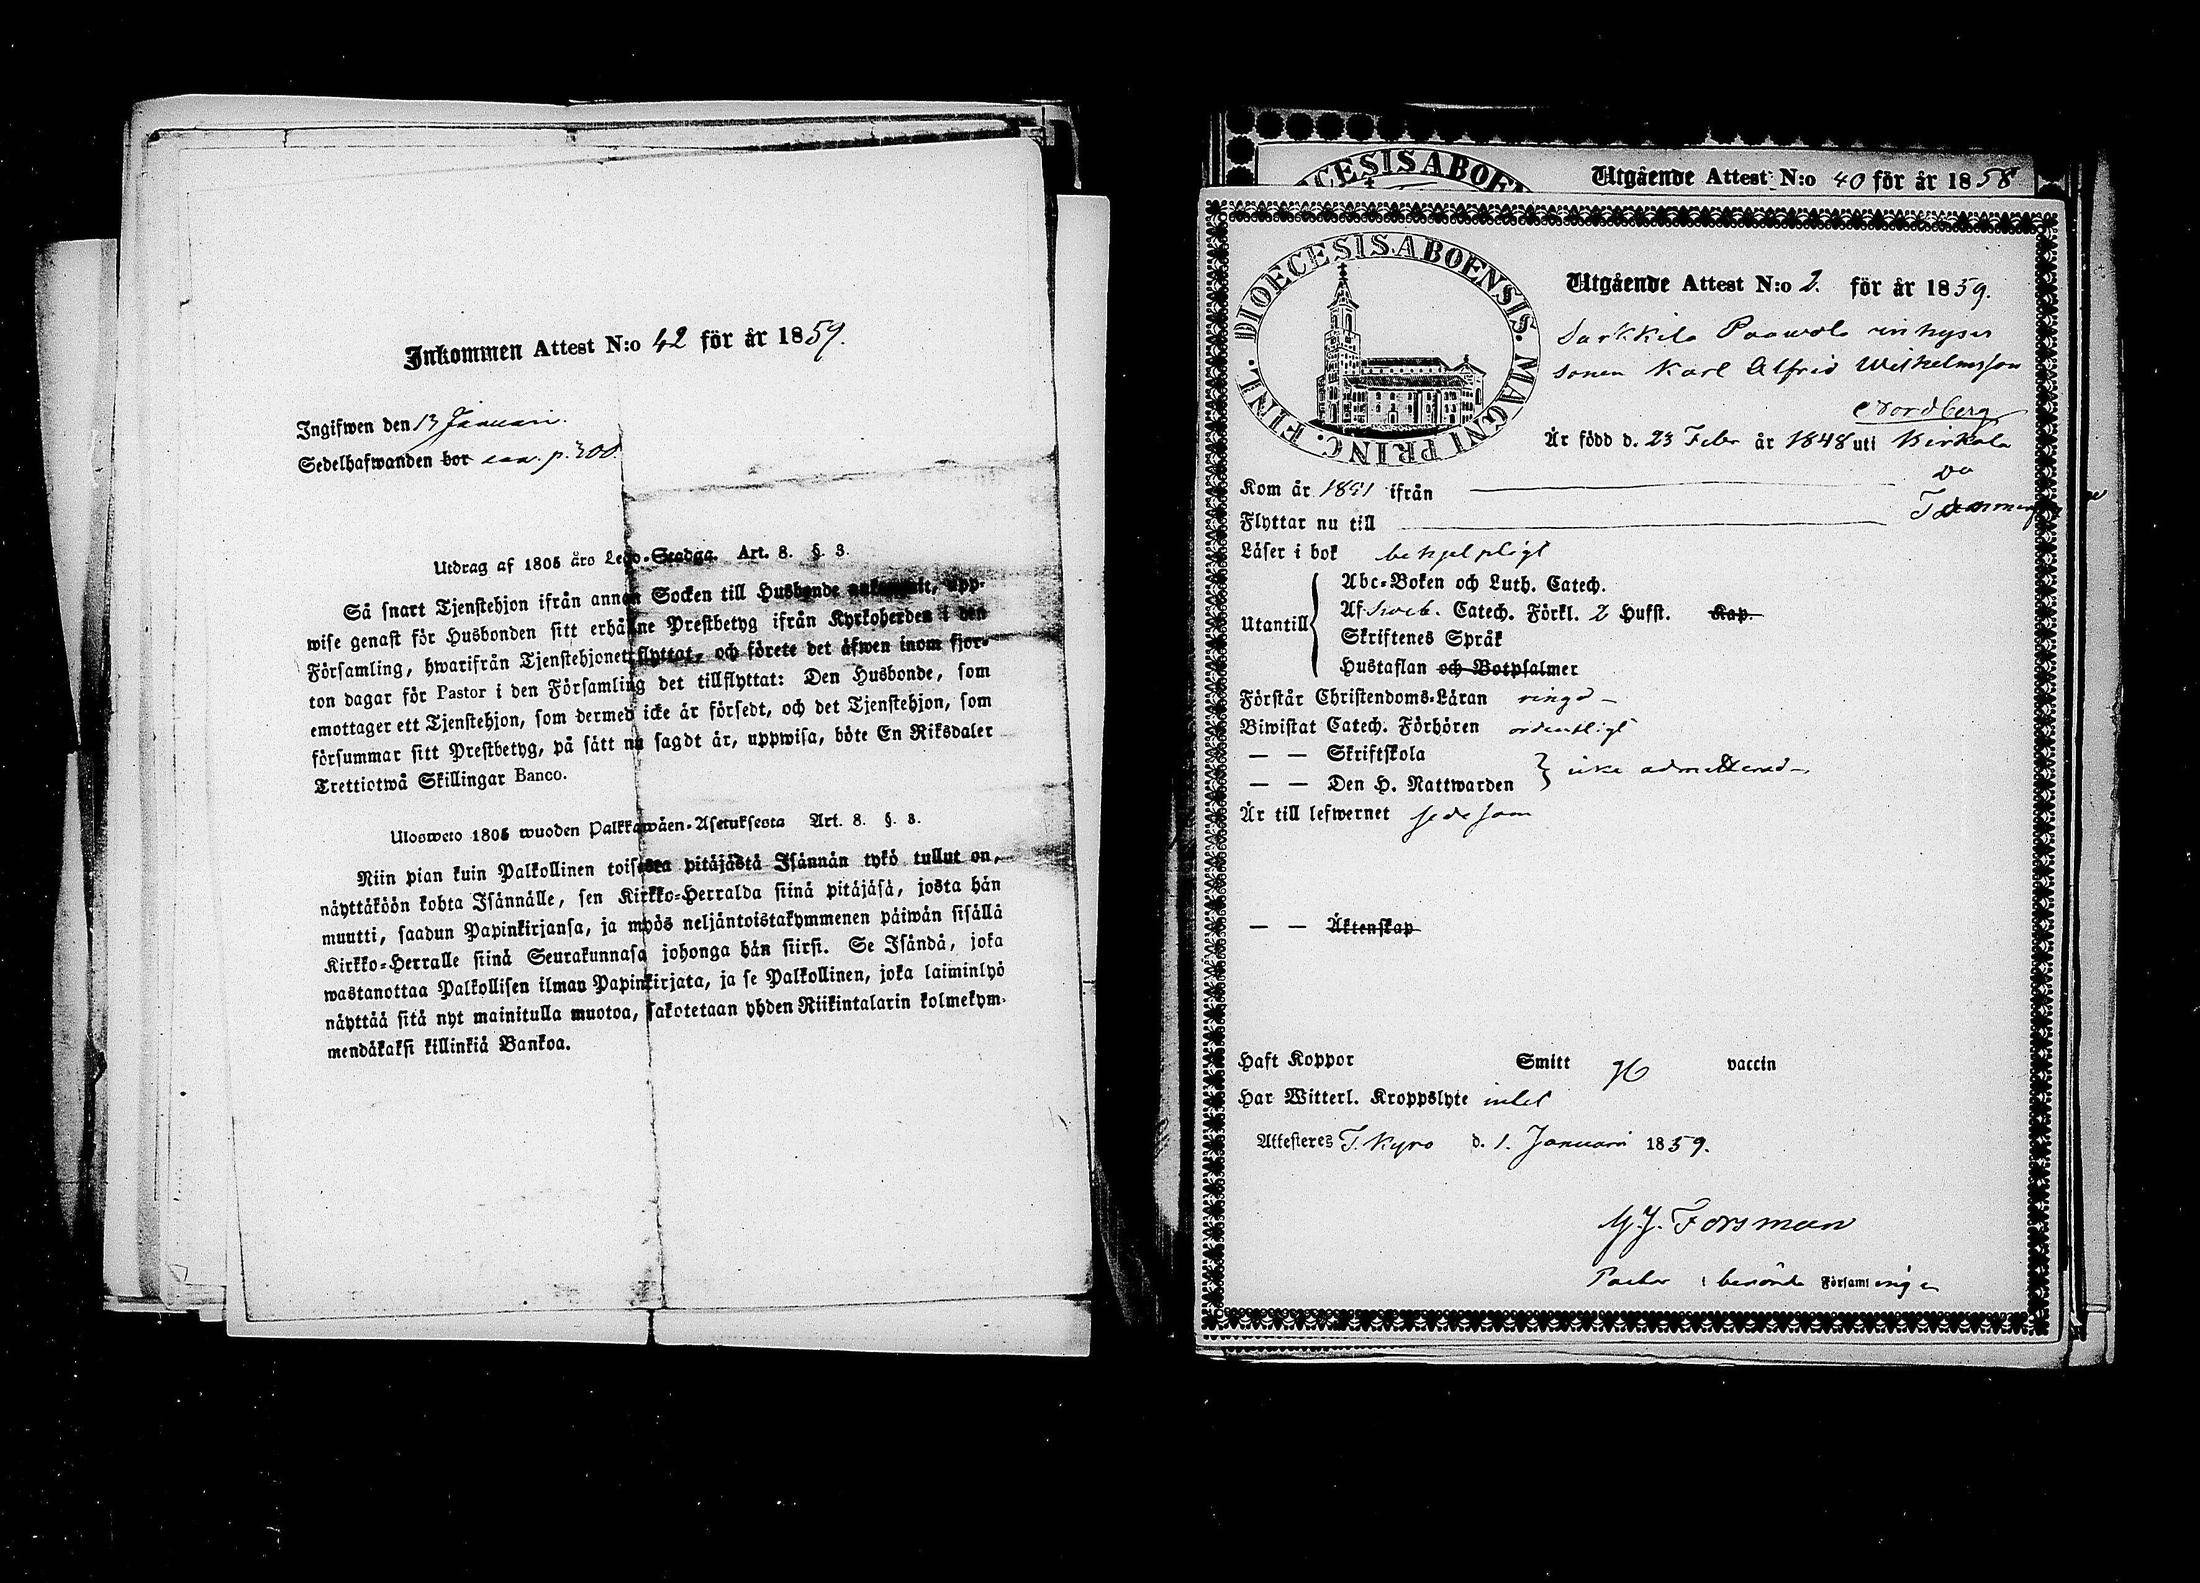 Inkommen Attest N:o 42 för år 1859.
Ingifwen den 13 Januari.
Sedelhafwanden bor p. 300.
Utdrag af 1805 års Lego-Stadga. Art. 8. §. 3.
Så snart Tjenstehjon ifrån annan Socken till Husbonde ankommit, upp-
wise genast för Husbonden sitt erhållne Prestbetyg ifrån Kyrkoherden i den
Församling, hwarifrån Tjenstehjonet flyttat, och förete det äfwen inom fjor-
ton dagar för Pastor i den Församling det tillflyttat: Den Husbonde, som
emottager ett Tjenstehjon, som dermed icke är försedt, och det Tjenstehjon, som
försummar sitt Prestbetyg, på sätt nu sagdt är, uppwisa, böte En Riksdaler
Trettiotwå Skillingar Banco.
Ulosweto 1805 wuoden Palkkawäen-Asetuksesta Art. 8. §. 3.
Niin pian kuin Palkollinen toisesta pitäjästä Isännän tykö tullut on,
näyttäköön kohta Isännälle, sen Kirkko-Herralda siinä pitäjäsä, josta hän
muutti, saadun Papinkirjansa, ja myös neljäntoistakymmenen päiwän sisällä
Kirkko-Herralle siinä Seurakunnasa johonga hän siirsi. Se Isändä, joka
wastanottaa Palkollisen ilman Papinkirjata, ja se Palkollinen, joka laiminlyö
näyttää sitä nyt mainitulla muotoa, sakotetaan yhden Riikintalarin kolmekym-
mendäkaksi killinkiä Bankoa.
DIOECESIS ABOENSIS
Utgående Attest N:o 40 för år 1858
DIOECESIS. ABOENSIS. MAGNI PRINC. FINL.
Utgående Attest N:o 2. för år 1859.
Sarkkila Paawola inhyses
sonen Karl Alfrid Wilhelmsson
Nordberg
Är född d. 23 Febr år 1848 uti Birkala
Kom år 1851 ifrån do
Flyttar nu till Tammerfors
Läser i bok behjelpligt
Utantill
Abc-Boken och Luth. Catech.
Af Sveb. Catech. Förkl. 2 Hufst. Kap.
Skriftenes Språk
Hustaflan och Botpsalmer
Förstår Christendoms-Läran ringa –
Biwistat Catech. Förhören ordentligt
— — Skriftskola
— — Den H. Nattwarden } icke admitterad –
Är till lefwernet sedesam
— — Äktenskap
Haft Koppor Smitt vaccin
Har Witterl. Kroppslyte intet
Attesteras T. Kyro d. 1. Januari 1859.
Forsman
Pastor i berörde Församlingen